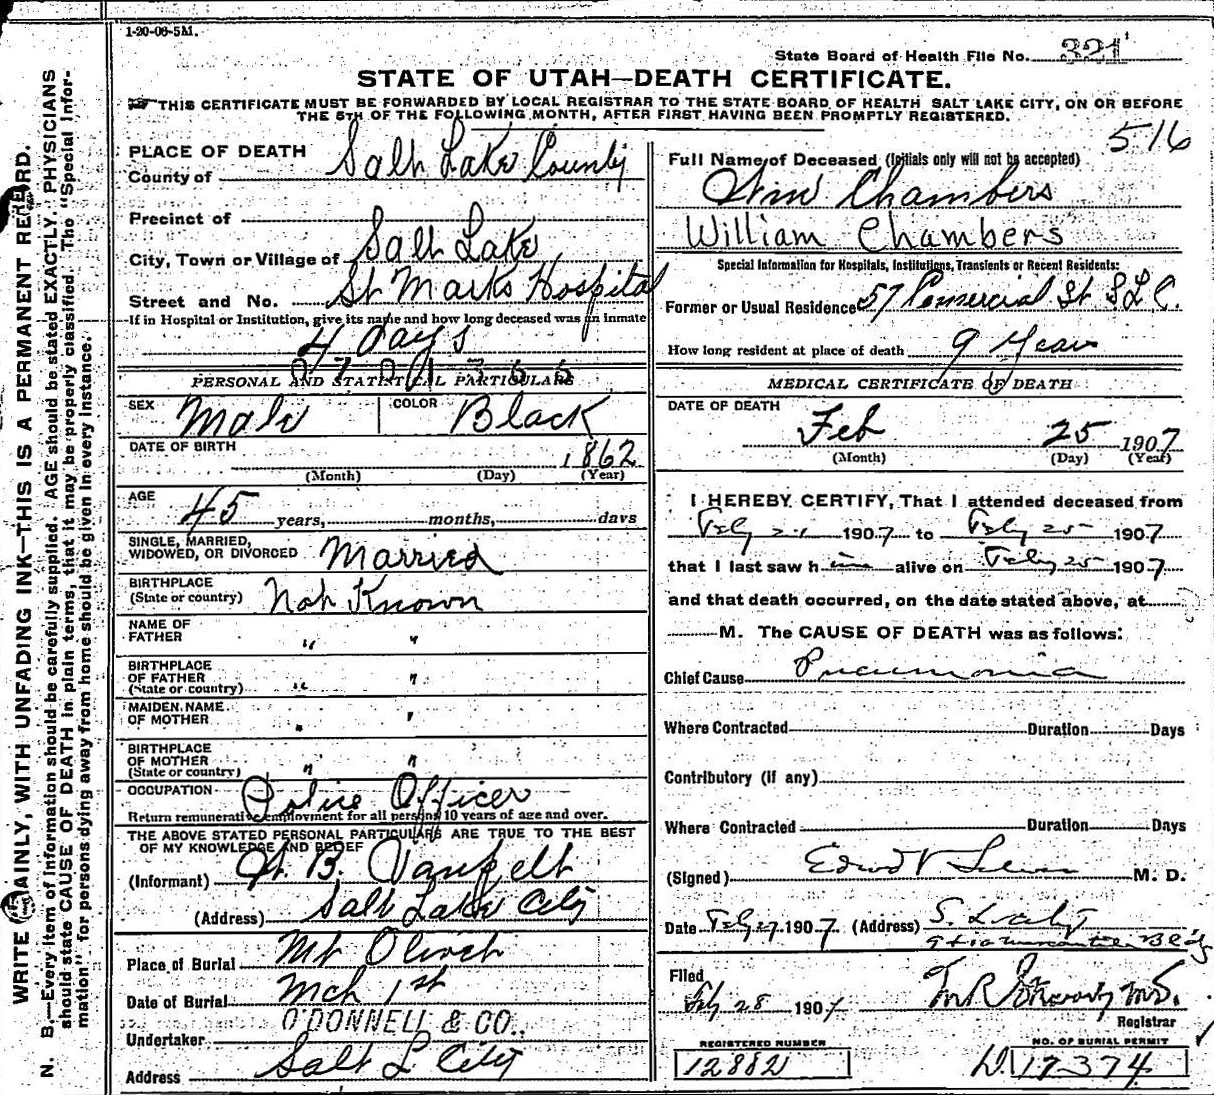 1-20-06-5M.
State Board of Health File No. 321
STATE OF UTAH—DEATH CERTIFICATE.
THIS CERTIFICATE MUST BE FORWARDED BY LOCAL REGISTRAR TO THE STATE BOARD OF HEALTH SALT LAKE CITY, ON OR BEFORE
THE 5TH OF THE FOLLOWING MONTH, AFTER FIRST HAVING BEEN PROMPTLY REGISTERED.
WRITE PLAINLY, WITH UNFADING INK—THIS IS A PERMANENT RECORD.
N. B.—Every item of information should be carefully supplied. AGE should be stated EXACTLY. PHYSICIANS
should state CAUSE OF DEATH in plain terms, that it may be properly classified. The "Special Infor-
mation" for persons dying away from home should be given in every instance.
PLACE OF DEATH
County of Salt Lake County
Precinct of
City, Town or Village of Salt Lake
Street and No. St Marks Hospital
If in Hospital or Institution, give its name and how long deceased was an inmate
4 days
0701366
PERSONAL AND STATISTICAL PARTICULARS
SEX Male COLOR Black
DATE OF BIRTH 1862
(Month) (Day) (Year)
AGE 45 years, months, days
SINGLE, MARRIED,
WIDOWED, OR DIVORCED Married
BIRTHPLACE
(State or country) Not Known
NAME OF
FATHER " "
BIRTHPLACE
OF FATHER
(State or country) " "
MAIDEN NAME
OF MOTHER " "
BIRTHPLACE
OF MOTHER
(State or country) " "
OCCUPATION Police Officer
Return remunerative employment for all persons 10 years of age and over.
THE ABOVE STATED PERSONAL PARTICULARS ARE TRUE TO THE BEST
OF MY KNOWLEDGE AND BELIEF
(Informant) B. Vanpelt
(Address) Salt Lake City
Place of Burial Mt Olivet
Date of Burial Mch 1st
Undertaker O'DONNELL & CO.
Address Salt L City
516
Full Name of Deceased (Initials only will not be accepted)
Wm Chambers
William Chambers
Special Information for Hospitals, Institutions, Transients or Recent Residents:
Former or Usual Residence 57 Comercial St S.L.C.
How long resident at place of death 9 Years
MEDICAL CERTIFICATE OF DEATH
DATE OF DEATH
Feb 25 1907
(Month) (Day) (Year)
I HEREBY CERTIFY, That I attended deceased from
Feby 21 1907 to Feby 25 1907
that I last saw him alive on Feby 25 1907
and that death occurred, on the date stated above, at
M. The CAUSE OF DEATH was as follows:
Chief Cause Pneumonia
Where Contracted Duration Days
Contributory (if any)
Where Contracted Duration Days
(Signed) M. D.
Date Feby 27 1907 (Address) S. L. City
Bldg
Filed
Feby 28 1907 M.D.
Registrar
REGISTERED NUMBER NO. OF BURIAL PERMIT
12882 D. 17374